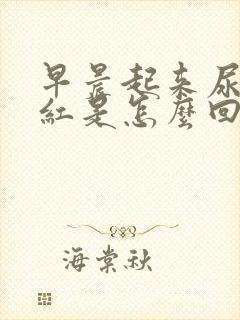 早晨起来尿
紅是怎麼回
海棠秋